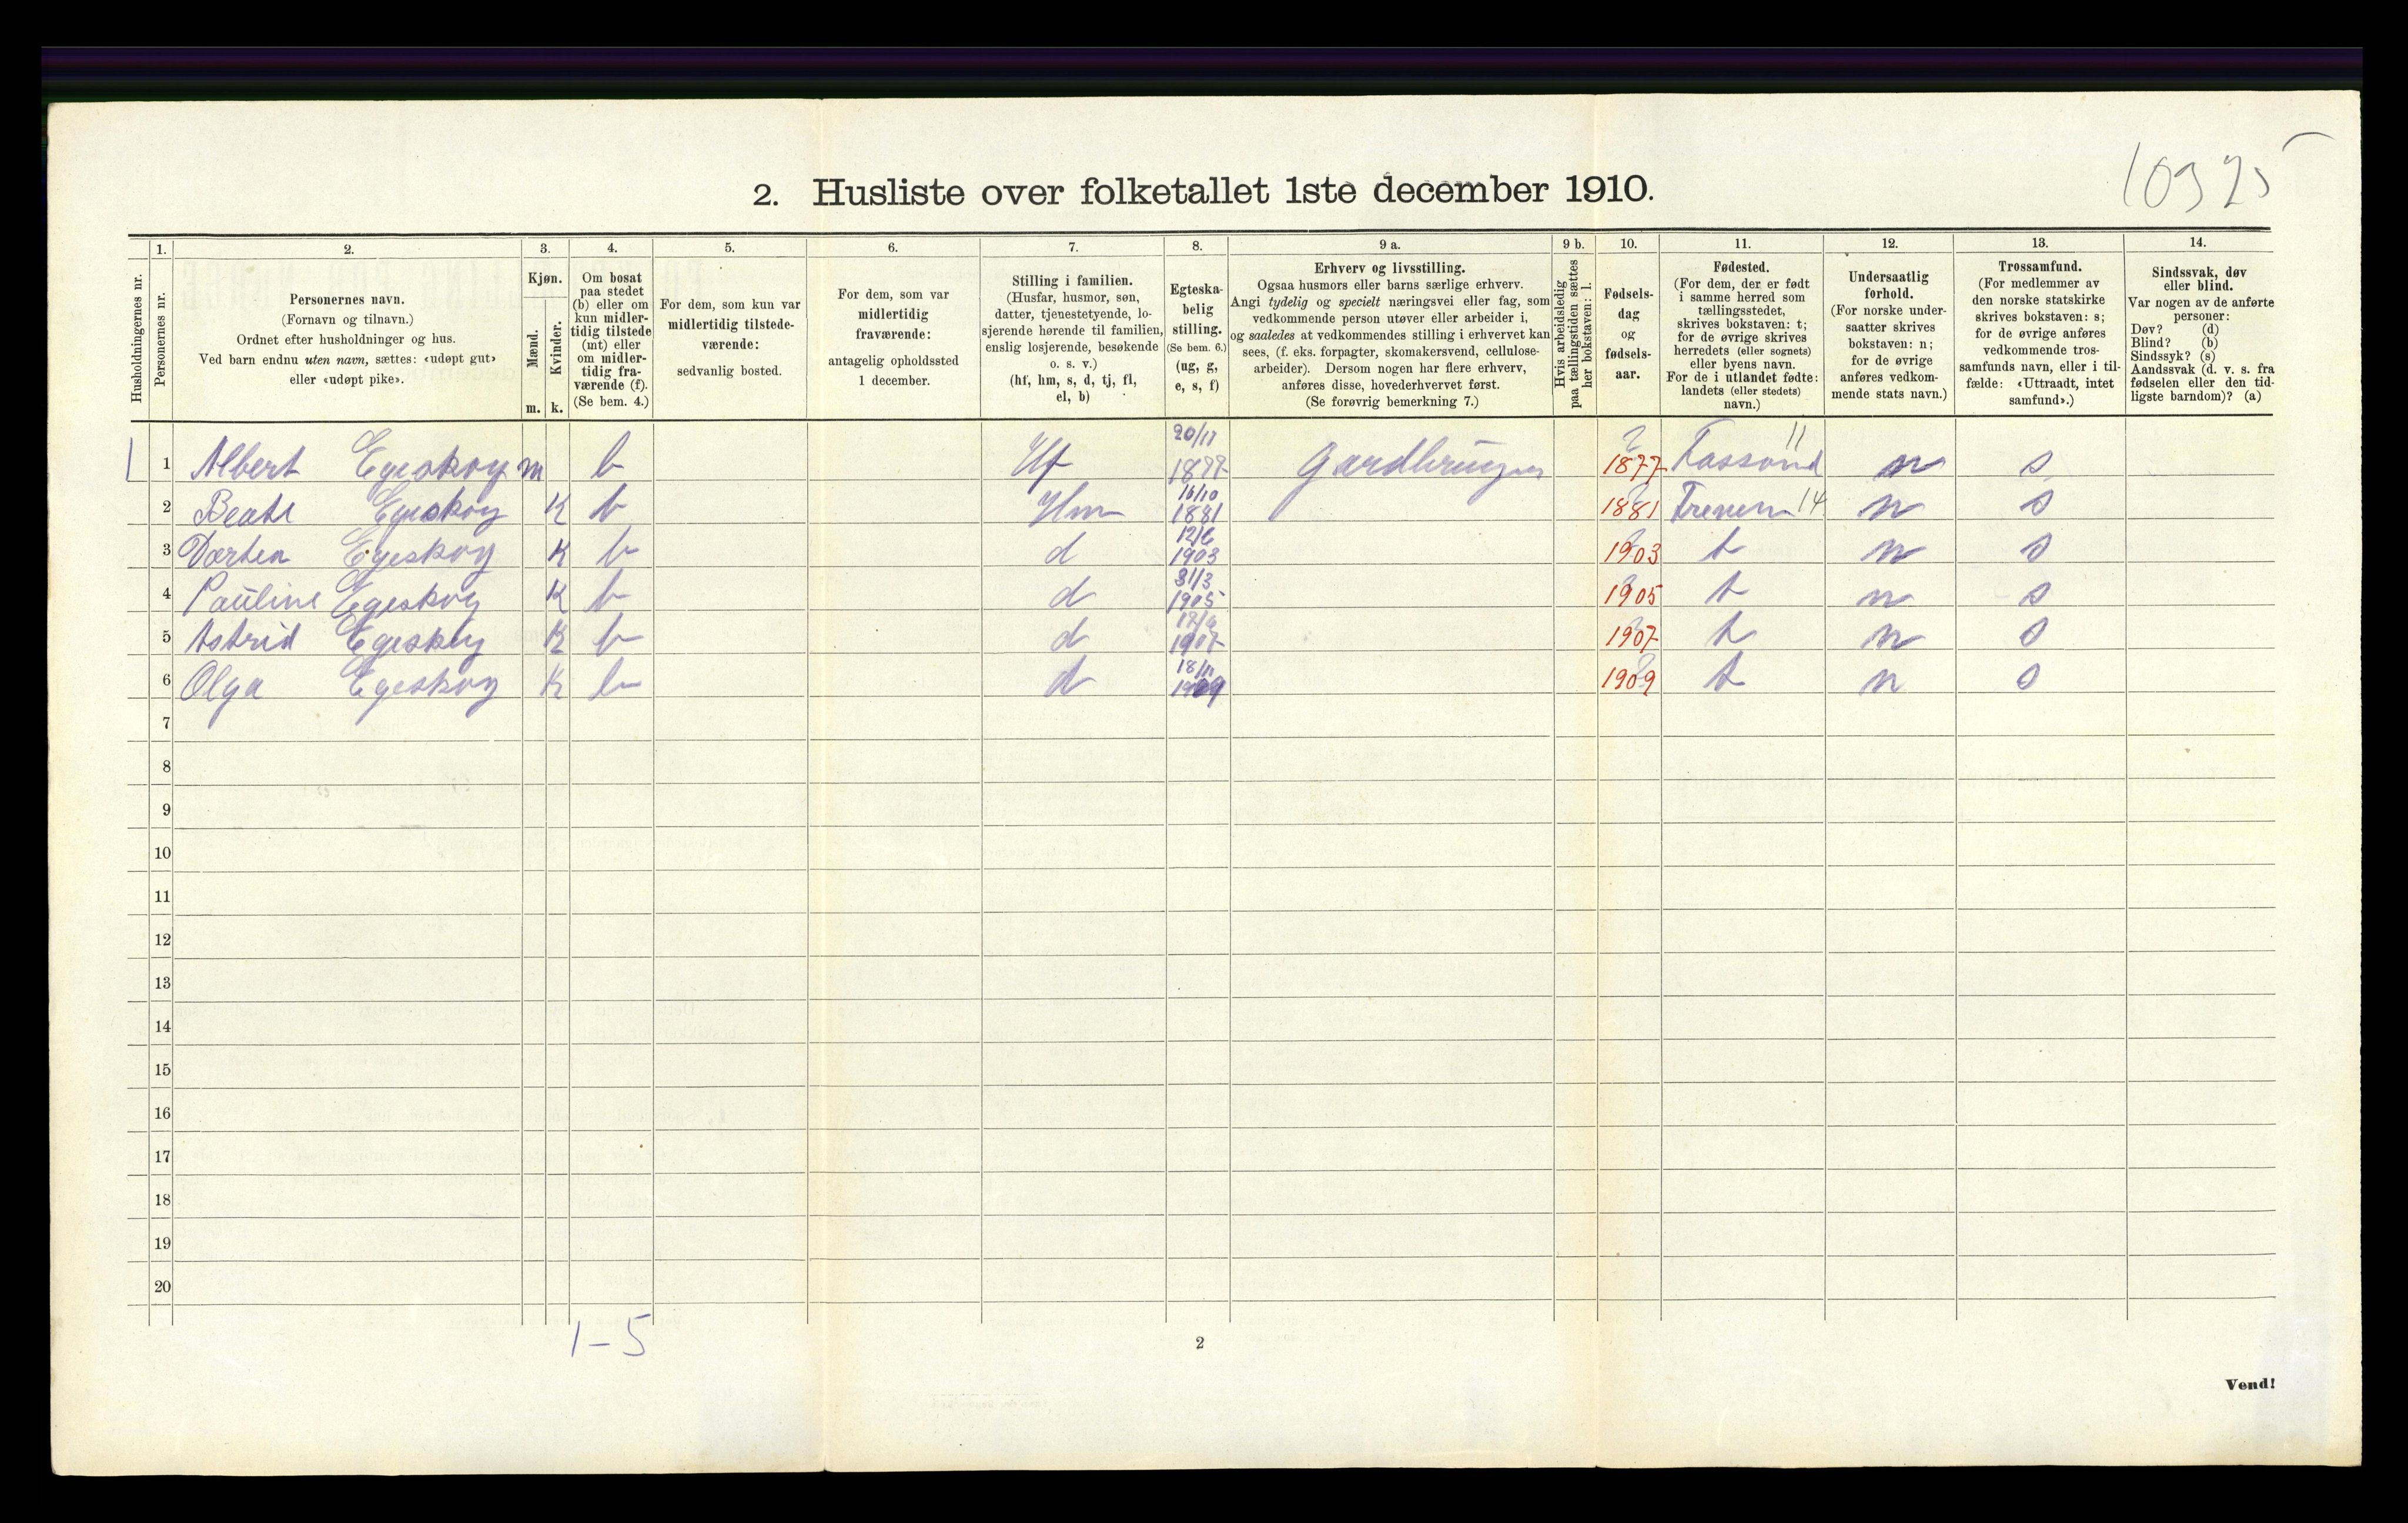 10325
2. Husliste over folketallet 1ste december 1910.
Husholdningernes nr.
1. Personernes nr.
2. Personernes navn.
(Fornavn og tilnavn.)
Ordnet efter husholdninger og hus.
Ved barn endnu uten navn, sættes: «udøpt gut»
eller «udøpt pike».
3. Kjøn.
Mænd. m.
Kvinder. k.
4. Om bosat
paa stedet
(b) eller om
kun midler-
tidig tilstede
(mt) eller
om midler-
tidig fra-
værende (f).
(Se bem. 4.)
5. For dem, som kun var
midlertidig tilstede-
værende:
sedvanlig bosted.
6. For dem, som var
midlertidig
fraværende:
antagelig opholdssted
1 december.
7. Stilling i familien.
(Husfar, husmor, søn,
datter, tjenestetyende, lo-
sjerende hørende til familien,
enslig losjerende, besøkende
o. s. v.)
(hf, hm, s, d, tj, fl,
el, b)
8. Egteska-
belig
stilling.
(Se bem. 6.)
(ug, g,
e, s, f)
9 a. Erhverv og livsstilling.
Ogsaa husmors eller barns særlige erhverv.
Angi tydelig og specielt næringsvei eller fag, som
vedkommende person utøver eller arbeider i,
og saaledes at vedkommendes stilling i erhvervet kan
sees, (f. eks. forpagter, skomakersvend, cellulose-
arbeider). Dersom nogen har flere erhverv,
anføres disse, hovederhvervet først.
(Se forøvrig bemerkning 7.)
9 b. Hvis arbeidsledig
paa tællingstiden sættes
her bokstaven: l.
10. Fødsels-
dag
og
fødsels-
aar.
11. Fødested.
(For dem, der er født
i samme herred som
tællingsstedet,
skrives bokstaven: t;
for de øvrige skrives
herredets (eller sognets)
eller byens navn.
For de i utlandet fødte:
landets (eller stedets)
navn.)
12. Undersaatlig
forhold.
(For norske under-
saatter skrives
bokstaven: n;
for de øvrige
anføres vedkom-
mende stats navn.)
13. Trossamfund.
(For medlemmer av
den norske statskirke
skrives bokstaven: s;
for de øvrige anføres
vedkommende tros-
samfunds navn, eller i til-
fælde: «Uttraadt, intet
samfund».)
14. Sindssvak, døv
eller blind.
Var nogen av de anførte
personer:
Døv? (d)
Blind? (b)
Sindssyk? (s)
Aandssvak (d. v. s. fra
fødselen eller den tid-
ligste barndom)? (a)
1 Albert Egeskog m b Hf 20/11 1877 Gardbruger 1877 11 n s
2 Beate Egeskog K b Hm 16/10 1881 1881 14 n s
3 Dortea Egeskog K b d 12/6 1903 1903 t n s
4 Pauline Egeskog K b d 31/3 1905 1905 t n s
5 Astrid Egeskog K b d 1907 1907 t n s
6 Olga Egeskog K b d 18/11 1909 1909 t n s
7
8
9
10
11
12
13
14
15
16
17
18
19
20
1-5
2
Vend!